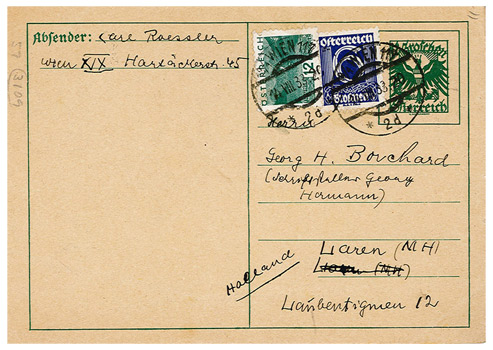 Absender: Carl Roessler
Wien XIX Hartäckerstr. 45
(3109
ÖSTERREICH
Österreich
Groschen
Österreich
WIEN 117
2d
WIEN 117
2d
Herrn
Georg H. Borchard
(Schriftsteller Georg
Hermann)
Holland
Laren (NH)
Laren (NH)
12